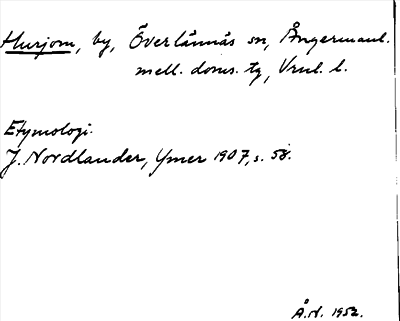 Hurjom, by, Överlännäs sn, Ångermanl.
mell. doms. tg, Vrnl. l.
Etymologi.
J. Nordlander, Ymer 1907, s. 58.
Å.N. 1952.